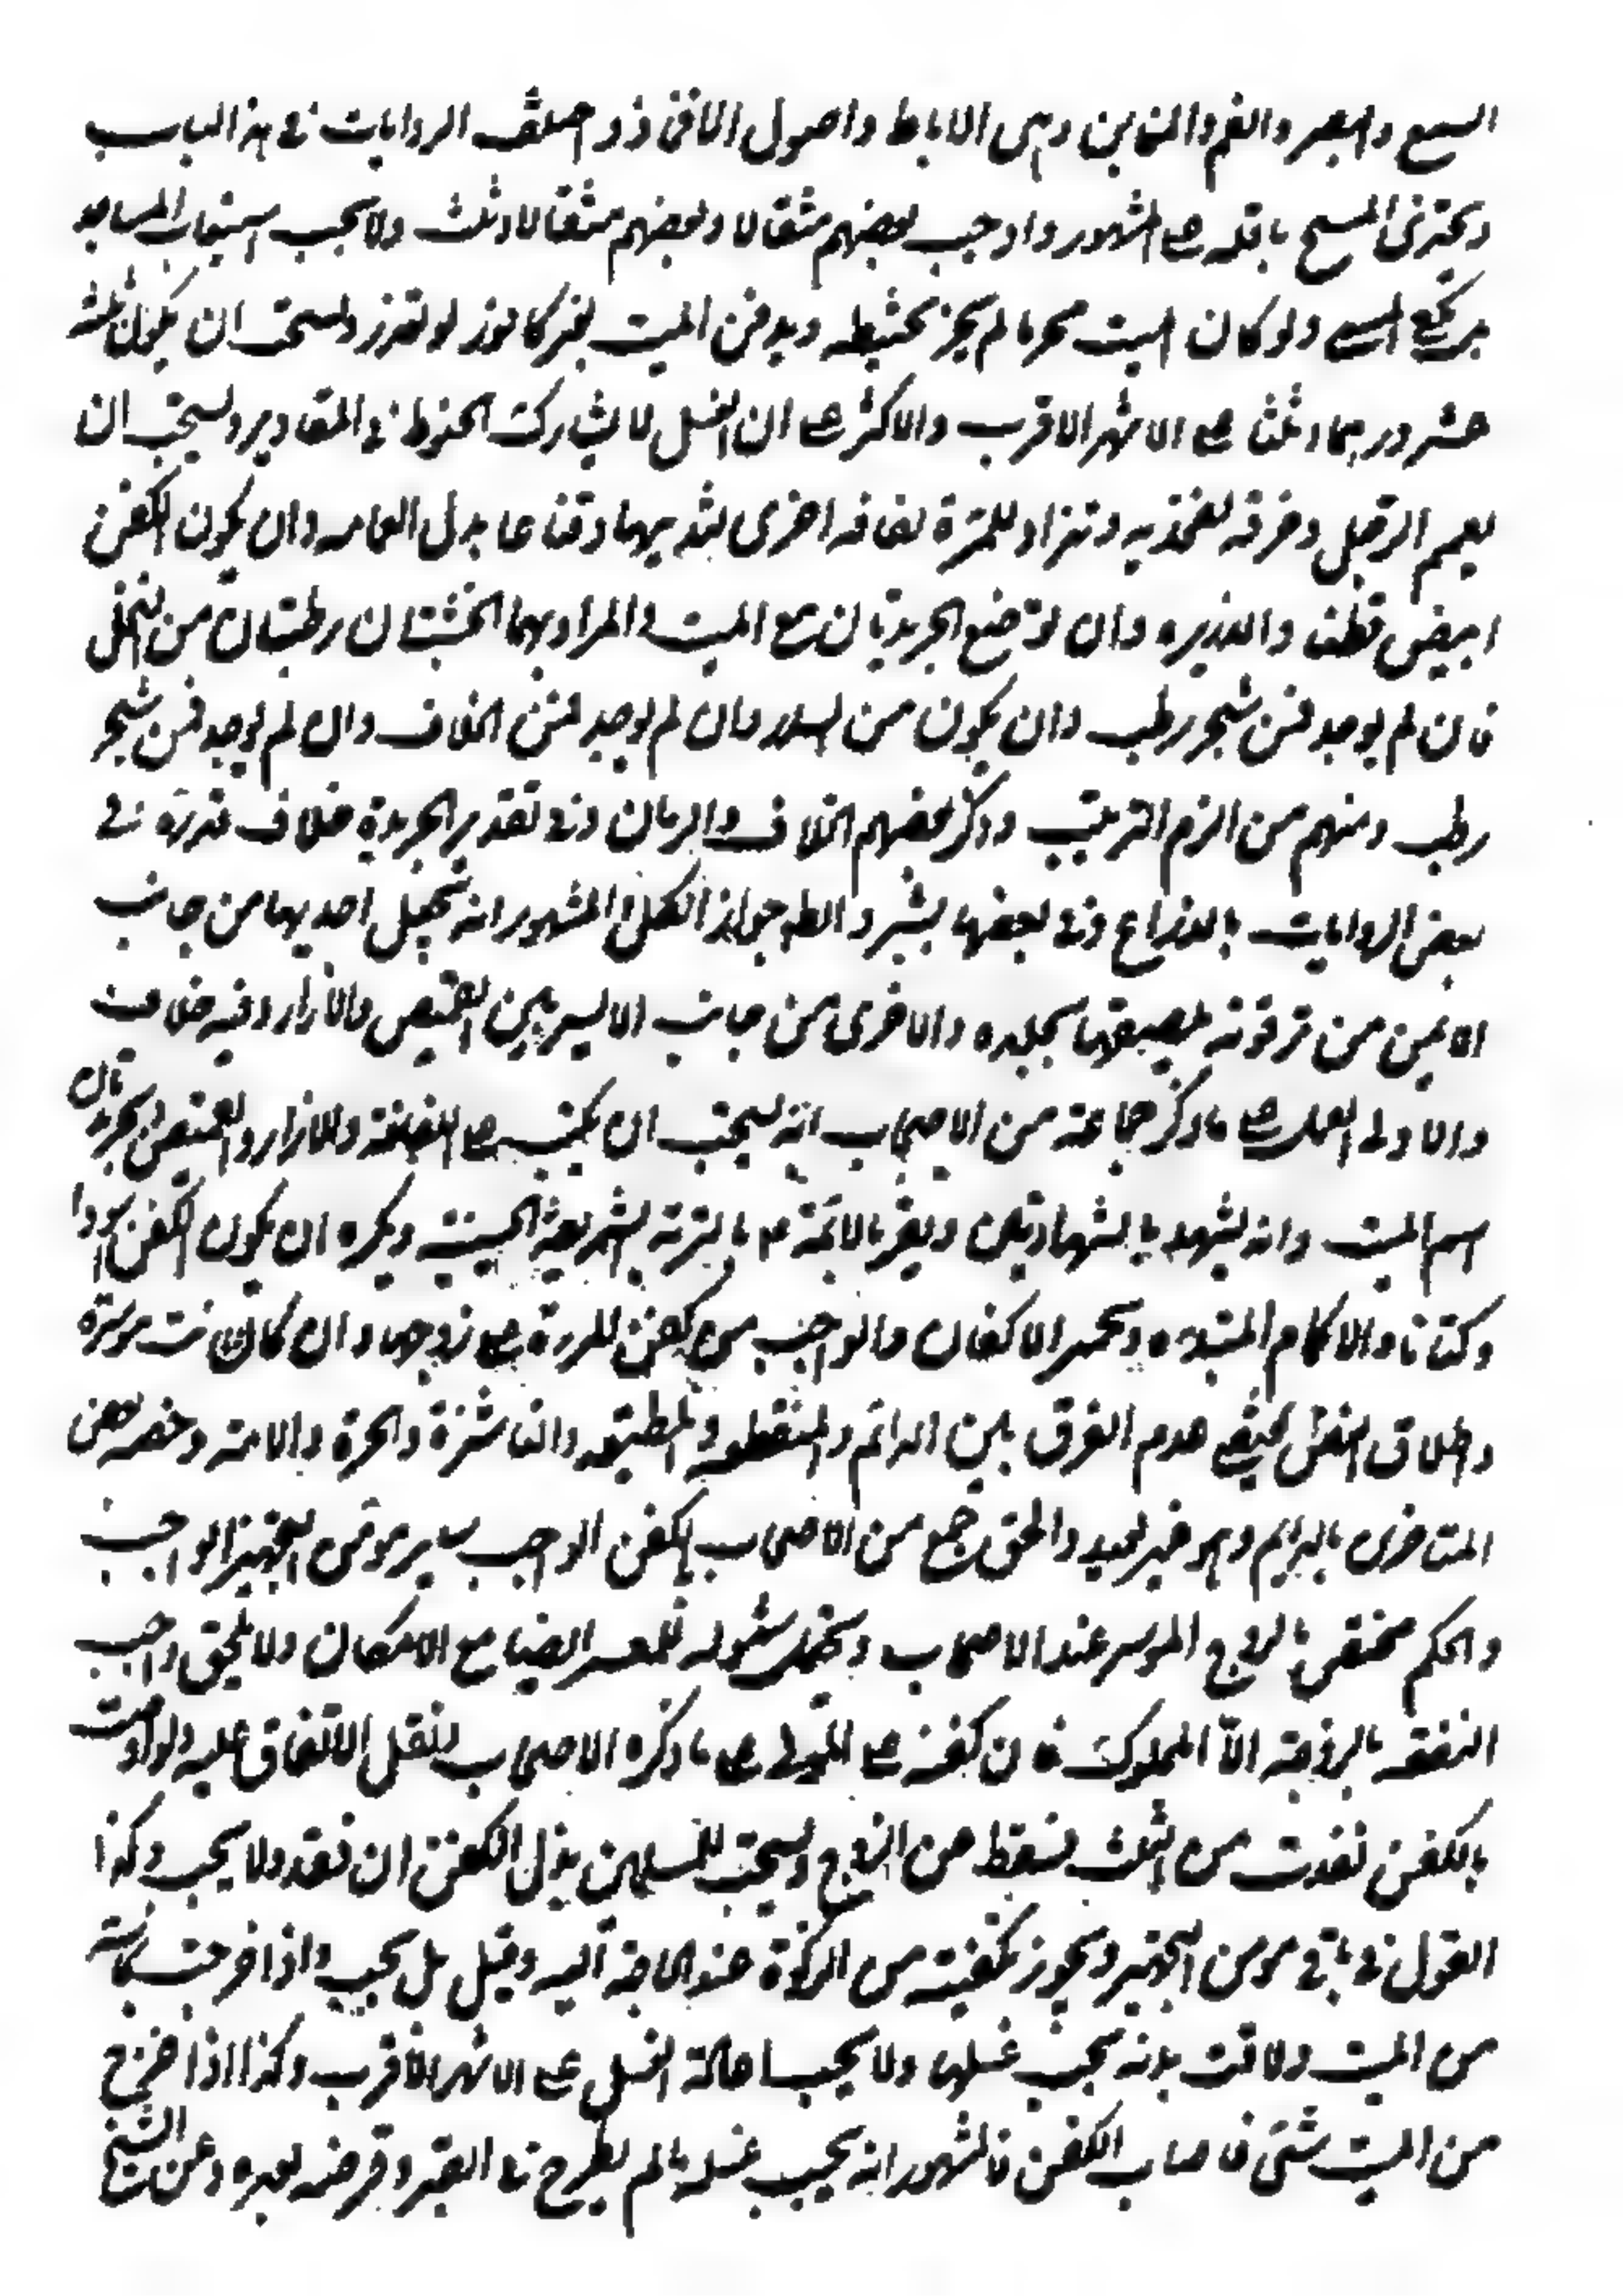 السمع والبصر والفم والمغابن وهى الاباط واصول الافخاذ واختلف الروايات فى هذا الباب
ويجتزئ المسح باقله على المشهور واوجب بعضهم مثقالا وبعضهم مثقالا وثلث ولا يجب استيعاب المساجد
بالمسح ولو كان الميت محرما لم يجز تحنيطه ويدفن الميت بغير كافور لو تعذر ويستحب ان يكون ثلثة
عشر درهما وثلثا على الاشهر الاقرب والاكثر على ان الغسل لا يشارك الحنوط فى المقادير ويستحب ان
يعمم الرجل وخرقه لفخذيه وتزاد للمرءة لفافه اخرى لثدييها وقناعا بدل العمامه وان يكون الكفن
ابيض قطنا والذريره وان توضع الجريدتان مع الميت والمراد بهما الخشبتان رطبتان من النخل
فان لم يوجد فمن شجر رطب وان يكون من السدر وان لم يوجد فمن الخلاف وان لم يوجد فمن شجر
رطب ومنهم من الزم الترتيب وذكر بعضهم الخلاف والرمان وفى تقدير الجريدة خلاف فقدره فى
بعض الروايات بالذراع وفى بعضها بشبر والظ جواز الكل والمشهور انه يجعل احديهما من جانب
الايمن من ترقوته يلصقها بجلده والاخرى من جانب الايسر بين القميص والازار وفيه خلاف
والاولى العمل على ما ذكر جماعة من الاصحاب انه يستحب ان يكتب على اللفافة والازار والقميص والجريدتان
اسم الميت وانه يشهد بالشهادتين ويقر بالائمة م بالتربة الشريفة الحسينية ويكره ان يكون الكفن سودا
وكتانا والاكمام المبتدءه وتجمير الاكفان والواجب من كفن المرءة على زوجها وان كانت موسرة
واطلاق النص يقتضى عدم الفرق بين الدائم والمنقطعه والمطيعه والناشزة والحرة والامة وخصه بعض
المتاخرى بالدايم وهو غير بعيد والحق جمع من الاصحاب بالكفن الواجب ساير مؤن التجهيز الواجب
والحكم مختص بالزوج الموسر عند الاصحاب ويحتمل شموله للمعسر ايضا مع الامكان ولا يلحق واجب
النفقه بالزوجة الا المملوك فان كفنه على المولى على ما ذكره الاصحاب لنقل الاتفاق عليه ولو اوصت
بالكفن نفذت من الثلث فسقط من الزوج ويستحب للمسلمين بذل الكفن ان فقد ولا يجب وكذا
القول فى باقى مؤن التجهيز ويجوز تكفينه من الزكوة عند الحاجة اليه وقيل بل يجب واذا خرجت نجاسة
من الميت ولاقت بدنه يجب غسلها ولا يجب اعادة الغسل على الاشهر الاقرب وكذا اذا خرج
من الميت شئ فاصاب الكفن فالمشهور انه يجب غسله ما لم يطرح فى القبر وقرضه بعده وعن الشيخ